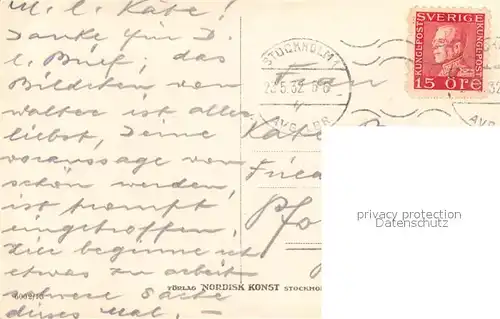 M. l. Käte!
Danke für D.
l. Brief; das
Bildchen von
Walter ist aller
liebst, Deine
Voraussage von
schön werden,
ist prompt
eingetroffen.
Hier beginne ich
etwas zu arbeit
schwere Sache
dieses Mal. —
Frau
Käte
Pfo
SVERIGE
KUNGL·POST
KUNGL·POST
15 ÖRE
STOCKHOLM
23.5.32
AVG
privacy protection
Datenschutz
6002/16
FÖRLAG NORDISK KONST STOCKHO